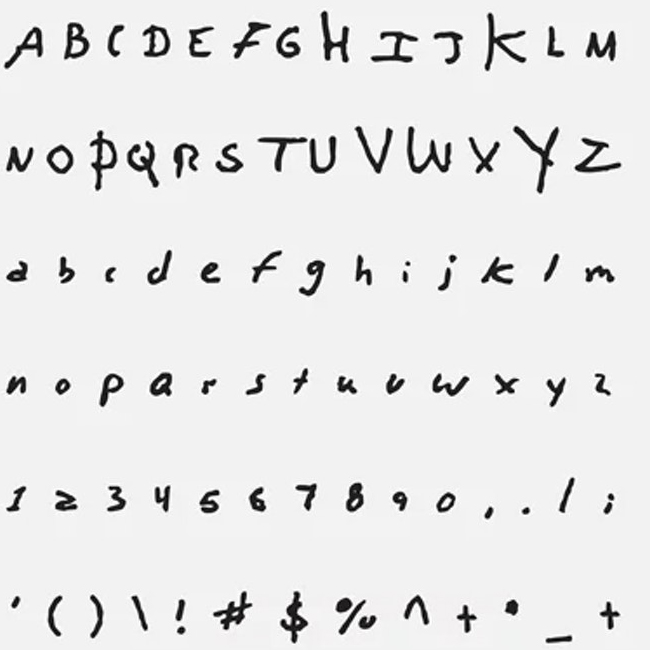 A B C D E F G H I J K L M
N O P Q R S T U V W X Y Z
a b c d e f g h i j k l m
n o p q r s t u v w x y z
1 2 3 4 5 6 7 8 9 0 , . / ;
' ( ) \ ! # $ % ^ + • _ +